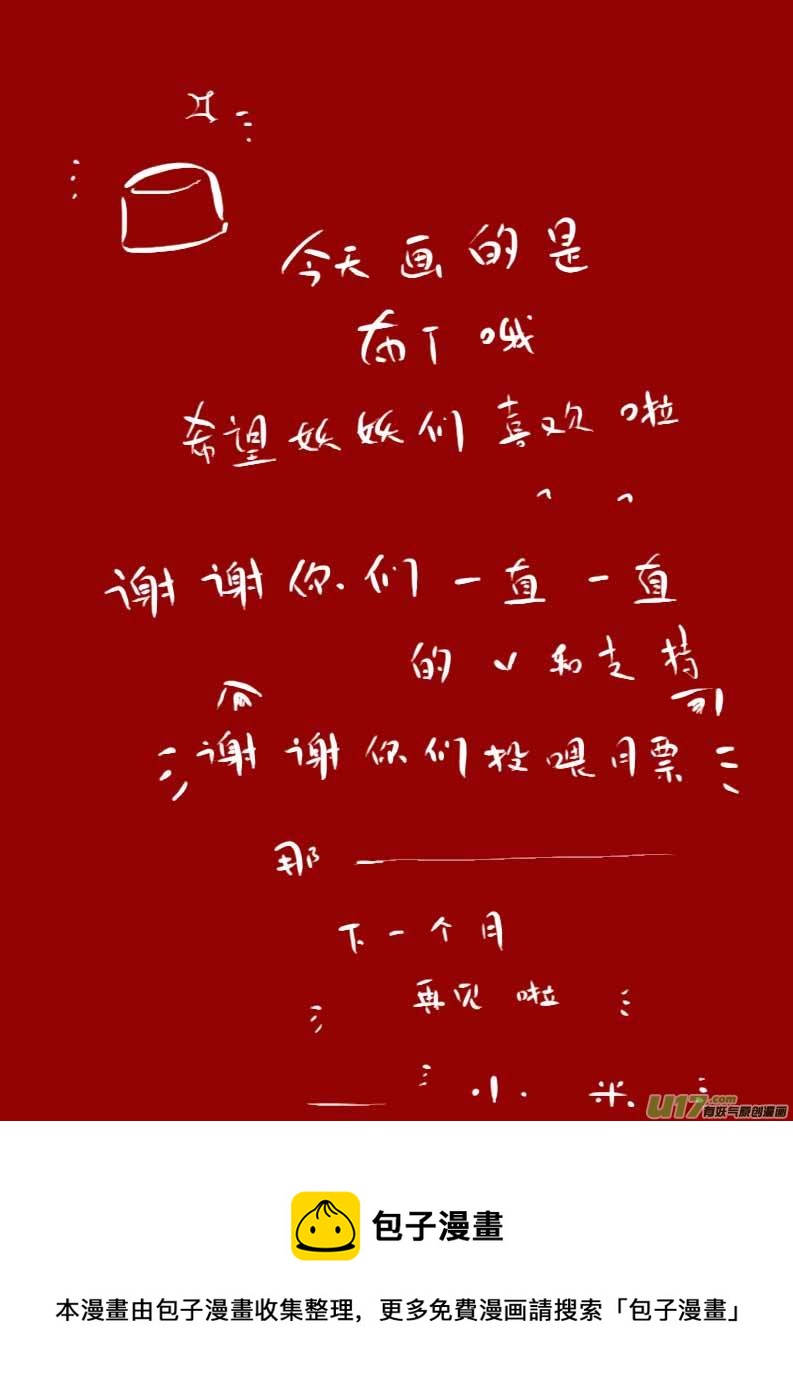 今天画的是
布丁哦
希望妖妖们喜欢啦
谢谢你们一直一直
的 v 和支持
谢谢你们投喂月票
那一
下一个月
再见啦
小米
U17.com
有妖气原创漫画
包子漫畫
本漫畫由包子漫畫收集整理，更多免費漫画請搜索「包子漫畫」